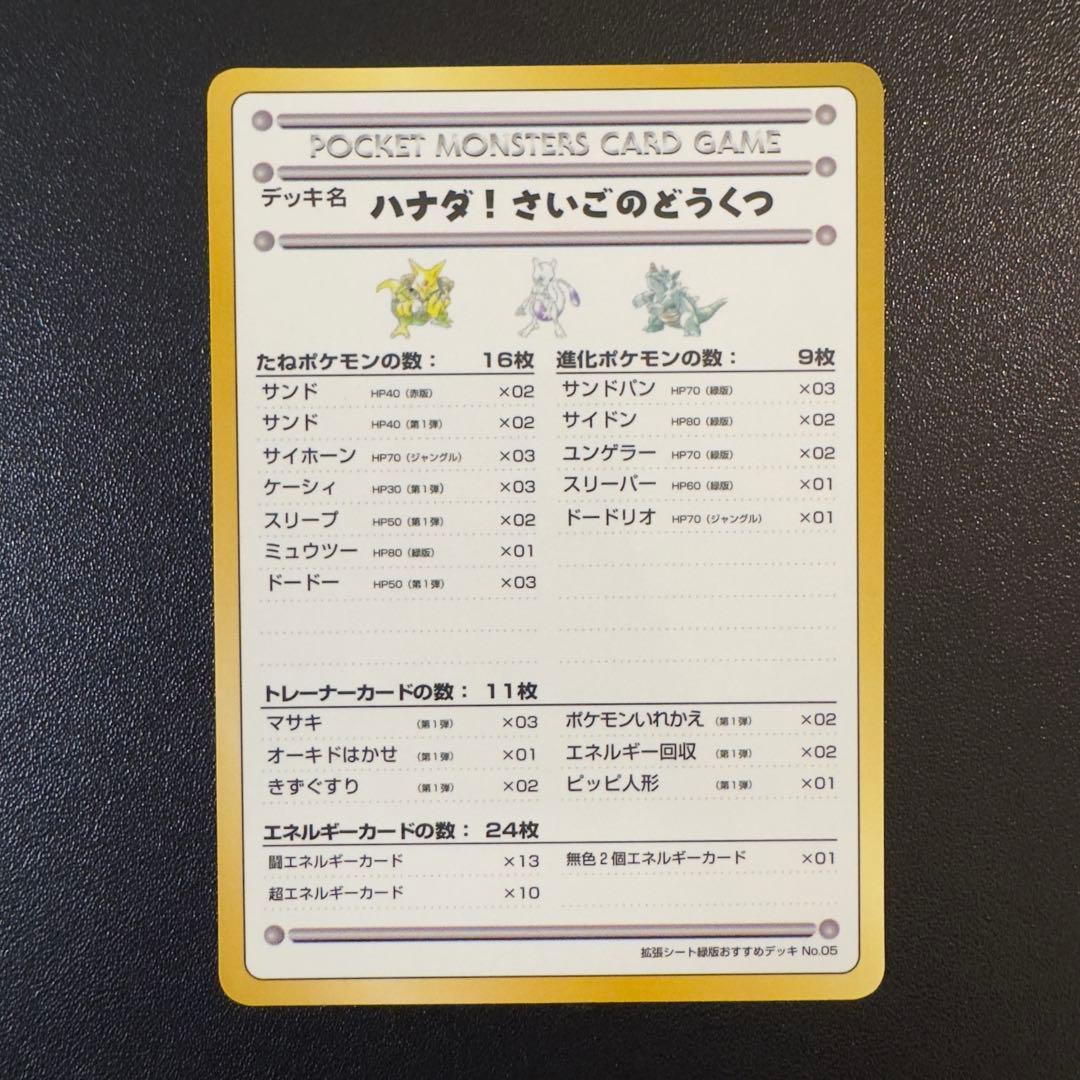 POCKET MONSTERS CARD GAME
デッキ名 ハナダ！さいごのどうくつ
たねポケモンの数： 16枚
サンド HP40（赤版） ×02
サンド HP40（第1弾） ×02
サイホーン HP70（ジャングル） ×03
ケーシィ HP30（第1弾） ×03
スリープ HP50（第1弾） ×02
ミュウツー HP80（緑版） ×01
ドードー HP50（第1弾） ×03
進化ポケモンの数： 9枚
サンドパン HP70（緑版） ×03
サイドン HP80（緑版） ×02
ユンゲラー HP70（緑版） ×02
スリーパー HP60（緑版） ×01
ドードリオ HP70（ジャングル） ×01
トレーナーカードの数： 11枚
マサキ （第1弾） ×03
オーキドはかせ （第1弾） ×01
きずぐすり （第1弾） ×02
ポケモンいれかえ （第1弾） ×02
エネルギー回収 （第1弾） ×02
ピッピ人形 （第1弾） ×01
エネルギーカードの数： 24枚
闘エネルギーカード ×13
超エネルギーカード ×10
無色2個エネルギーカード ×01
拡張シート緑版おすすめデッキ No.05